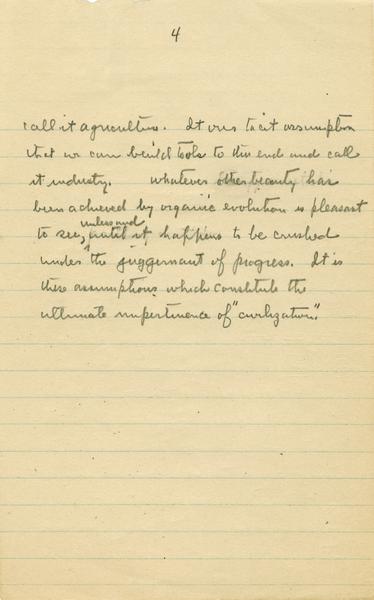 4
call it agriculture. It is our tacit assumption
that we can build tools to this end and call
it industry. Whatever other beauty has
been achieved by organic evolution is pleasant
unless and
to see, until it happens to be crushed
under the juggernaut of progress. It is
these assumptions which constitute the
ultimate impertinence of "civilization".